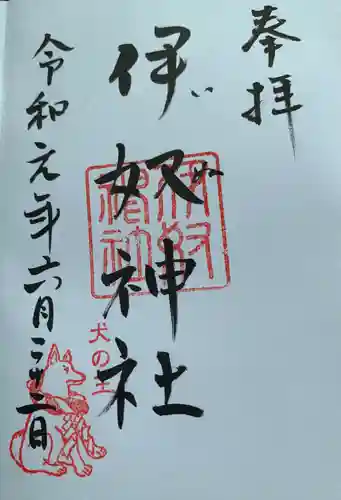 奉拝
伊奴神社
いぬ
伊奴神社
令和元年六月二十二日
犬の王